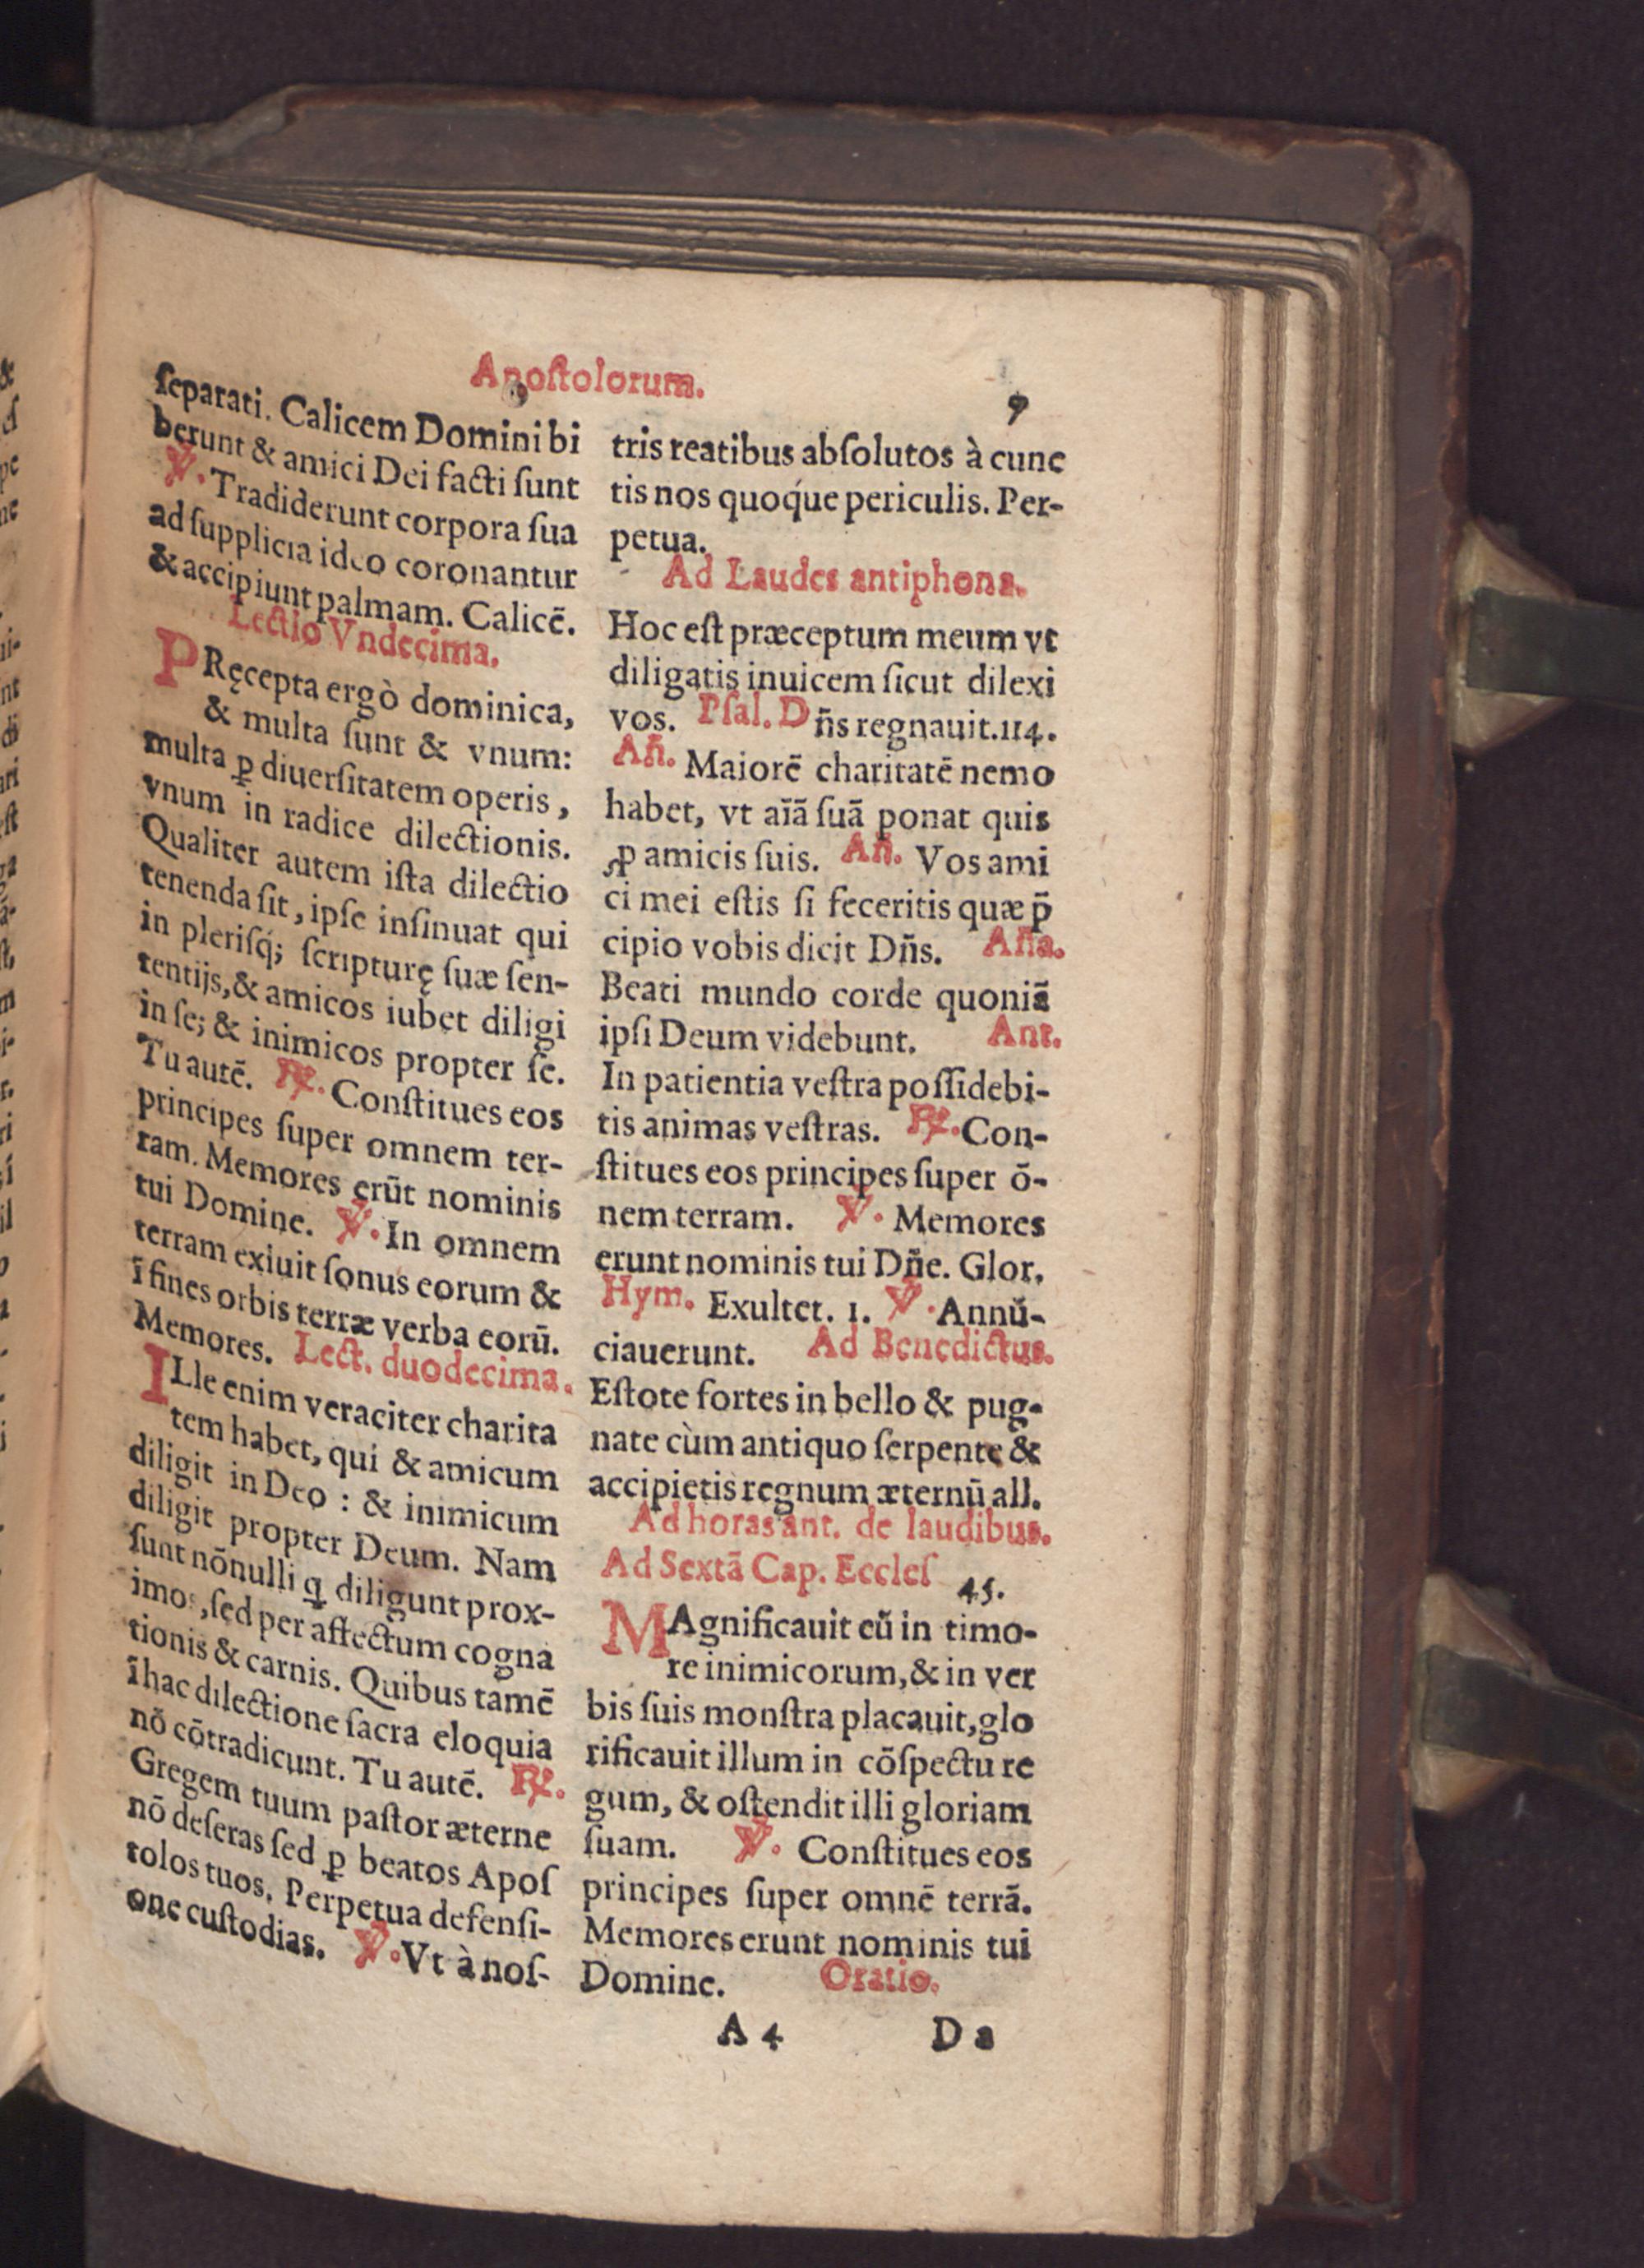 Apostolorum.
9
ſeparati. Calicem Domini bi
berunt & amici Dei facti ſunt
℣. Tradiderunt corpora ſua
ad ſupplicia ideo coronantur
& accipiunt palmam. Calicē.
Lectio Vndecima.
PRęcepta ergò dominica,
& multa ſunt & vnum:
multa ꝑ diuerſitatem operis,
vnum in radice dilectionis.
Qualiter autem iſta dilectio
tenenda ſit, ipſe inſinuat qui
in pleriſq́; ſcripturę ſuæ ſen-
tentijs, & amicos iubet diligi
in ſe; & inimicos propter ſe.
Tu autē. ℟. Conſtitues eos
principes ſuper omnem ter-
ram. Memores erūt nominis
tui Domine. ℣. In omnem
terram exiuit ſonus eorum &
ī fines orbis terræ verba eorū.
Memores. Lect. duodecima.
ILle enim veraciter charita
tem habet, qui & amicum
diligit in Deo : & inimicum
diligit propter Deum. Nam
ſunt nōnulli q̄ diligunt prox-
imos, ſed per affectum cogna
tionis & carnis. Quibus tamē
ī hac dilectione ſacra eloquia
nō cōtradicunt. Tu autē. ℟.
Gregem tuum paſtor æterne
nō deſeras ſed ꝑ beatos Apoſ
tolos tuos. Perpetua defenſi-
one cuſtodias. ℣. Vt à noſ-
tris reatibus abſolutos à cunc
tis nos quoq́ue periculis. Per-
petua.
Ad Laudes antiphona.
Hoc eſt præceptum meum vt
diligatis inuicem ſicut dilexi
vos. Pſal. Dn̄s regnauit.114.
An̄. Maiorē charitatē nemo
habet, vt aīā ſuā ponat quis
ꝓ amicis ſuis. An̄. Vos ami
ci mei eſtis ſi feceritis quæ p̄
cipio vobis dicit Dn̄s. An̄a.
Beati mundo corde quoniā
ipſi Deum videbunt. Ant.
In patientia veſtra poſſidebi-
tis animas veſtras. ℟. Con-
ſtitues eos principes ſuper ō-
nem terram. ℣. Memores
erunt nominis tui Dn̄e. Glor.
Hym. Exultet. 1. ℣. Annū-
ciauerunt. Ad Benedictus.
Eſtote fortes in bello & pug-
nate cùm antiquo ſerpente &
accipietis regnum æternū all.
Ad horas ant. de laudibus.
Ad Sextā Cap. Eccleſ 45.
MAgnificauit eū in timo-
re inimicorum, & in ver
bis ſuis monſtra placauit, glo
rificauit illum in cōſpectu re
gum, & oſtendit illi gloriam
ſuam. ℣. Conſtitues eos
principes ſuper omnē terrā.
Memores erunt nominis tui
Domine. Oratio.
A 4 Da